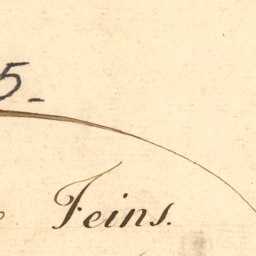 5
Feins.